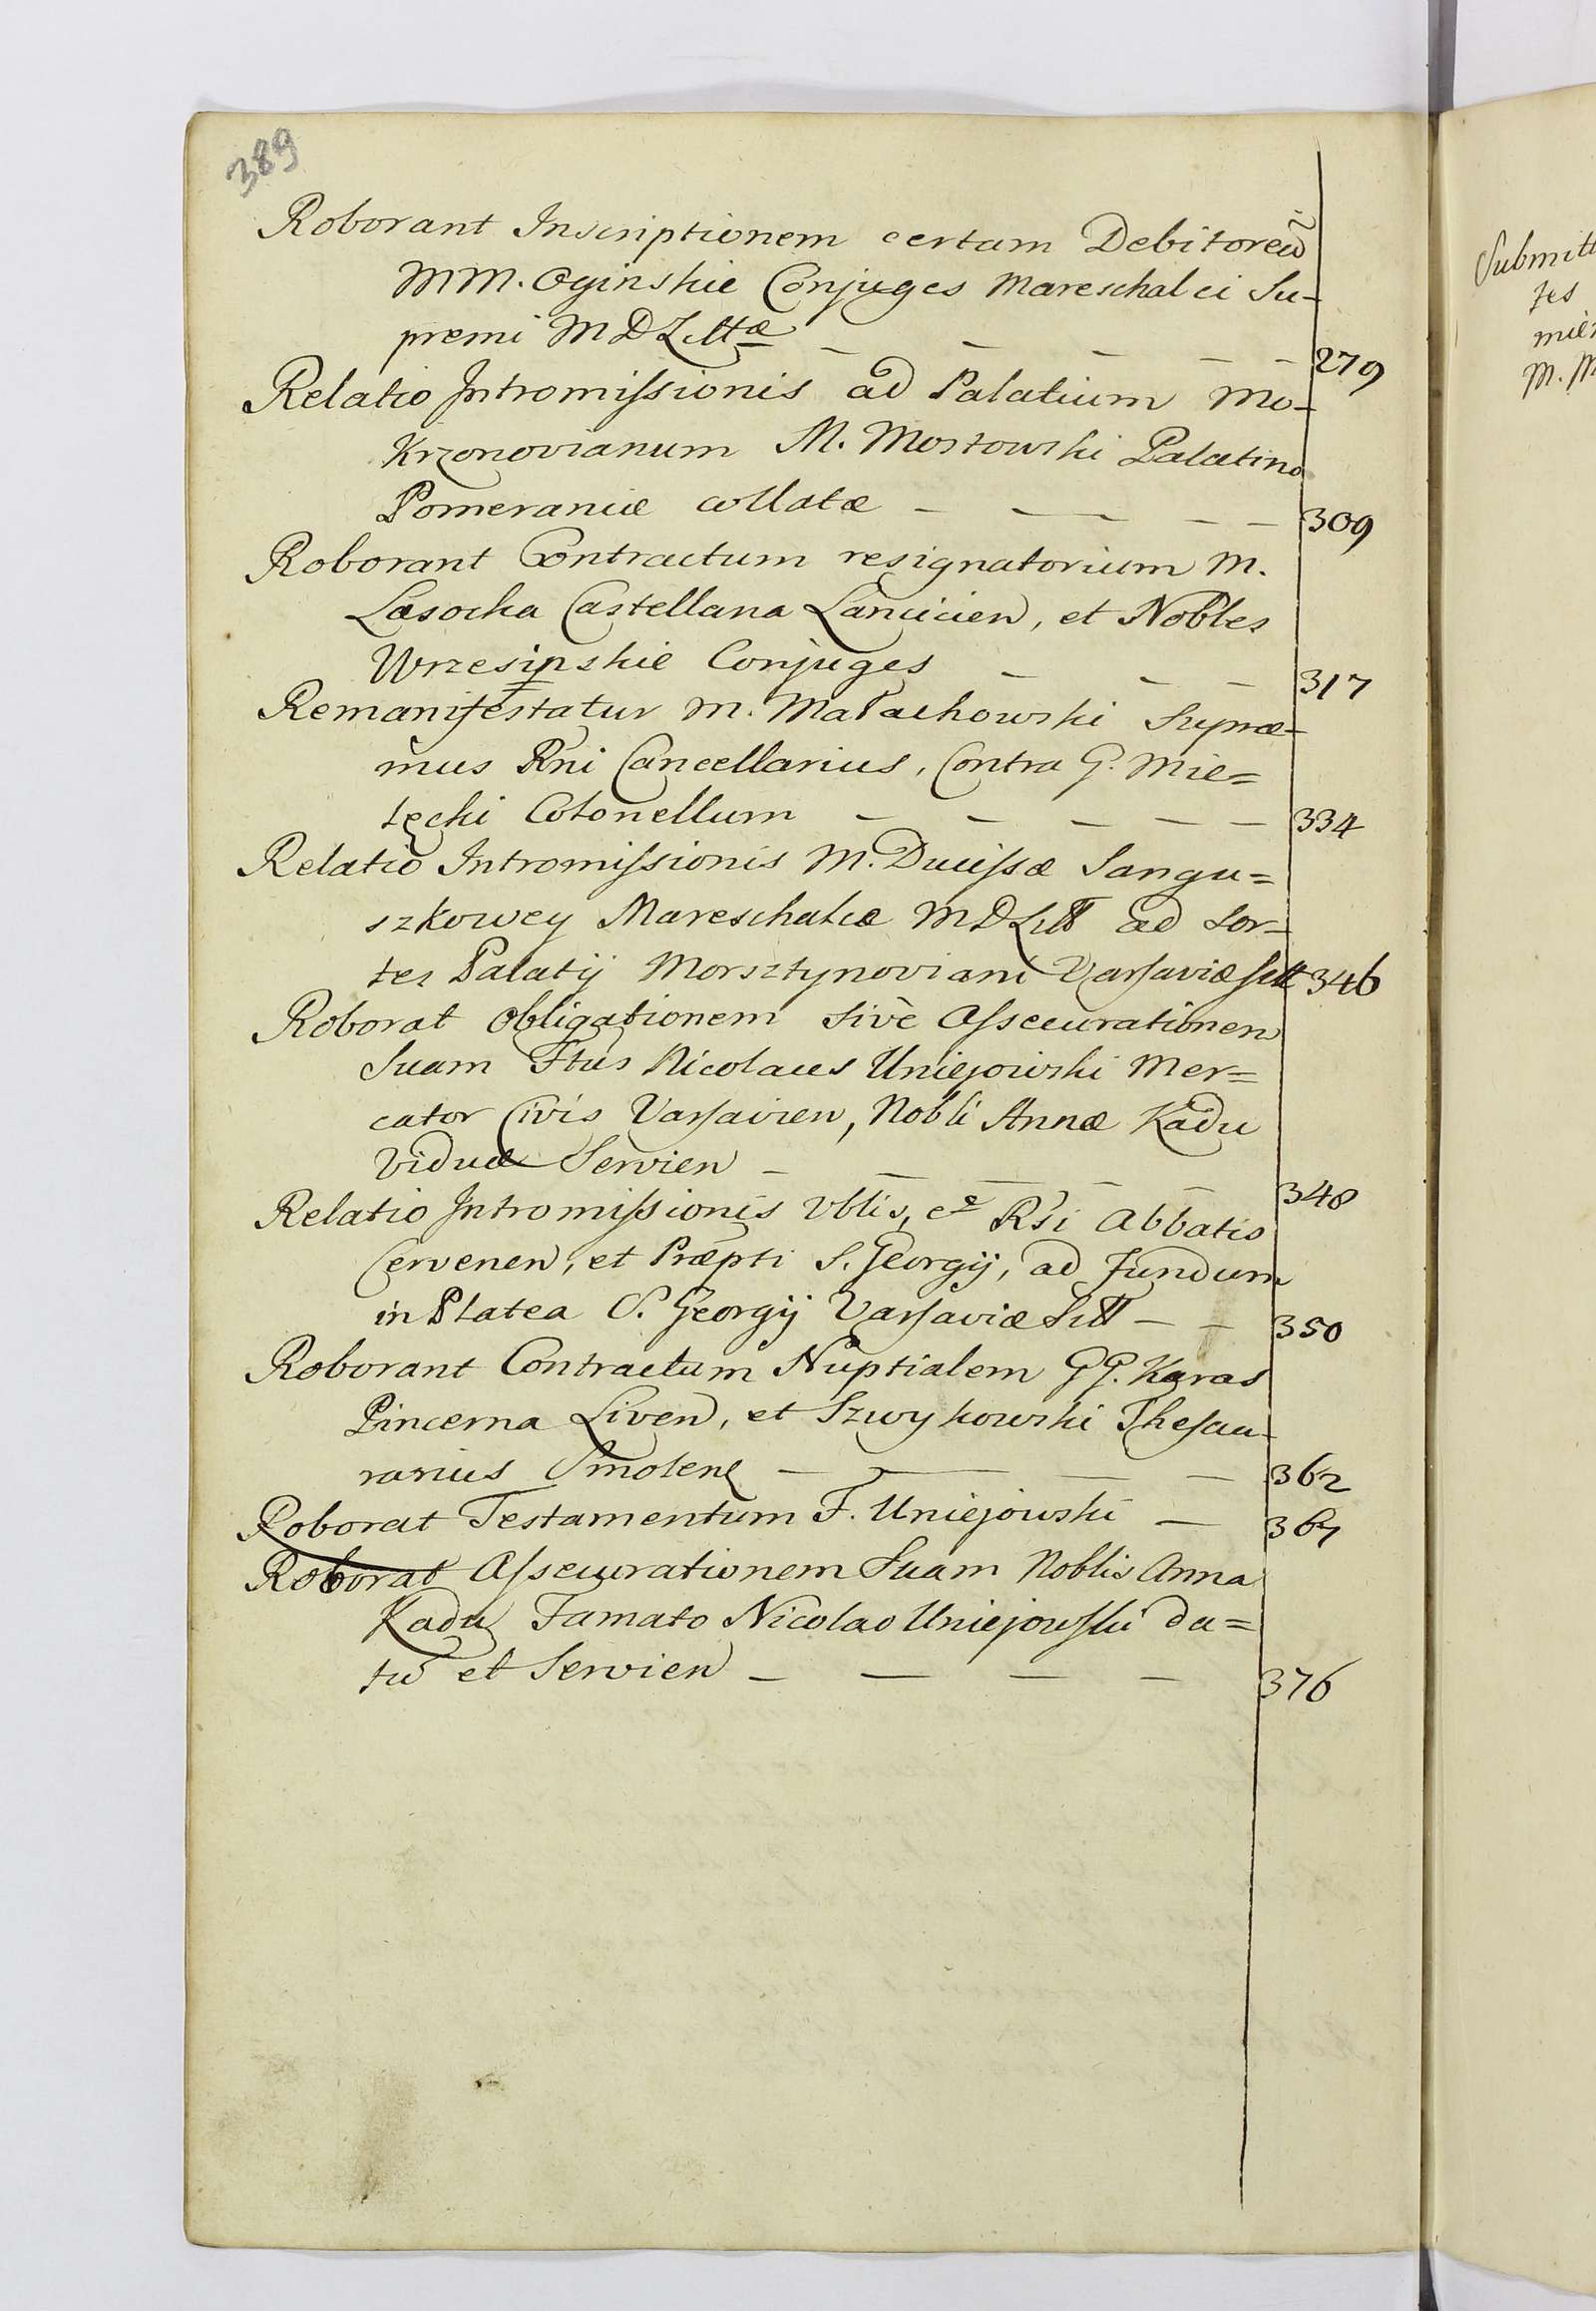 389
Roborant Inscriptionem certam Debitoreã
MM. Oginskie Conjuges Mareschalci Su-
premi MDLittæ — — — — — 279
Relatio Intromissionis ad Palatium Mo-
krzonovianum M. Mostowski Palatino
Pomeraniæ collatæ — — — — 309
Roborant Contractum resignatorium M.
Lasocka Castellana Lancicien, et Nobles
Wrzesinskie Conjuges — — — 317
Remanifestatur M. Małachowski Supræ-
mus Rni Cancellarius, Contra G. Mie=
tecki Colonellum — — — — — 334
Relatio Intromissionis M. Ducissæ Sangu=
szkowey Mareschalcæ MDLitt ad Sor-
tes Palatij Morsztynoviani Varsaviæ sitt 346
Roborat Obligationem sivè Assecurationem
Suam Ftus Nicolaus Uniejowski Mer=
cator Civis Varsavien, Nobli Annæ Kadu
Viduæ Servien — — — — — 348
Relatio Intromissionis Vblis, et Rsi Abbatis
Cervenen, et Præpti S. Georgij, ad Fundum
in Platea S. Georgij Varsaviæ Sitt — — 350
Roborant Contractum Nuptialem GG. Karas
Pincerna Liven, et Szwykowski Thesau-
rarius Smolen — — — — 362
Roborat Testamentum F. Uniejowski — 367
Roborat Assecurationem Suam Noblis Anna
Kadu Famato Nicolao Uniejowski da=
tã et Servien — — — — 376
Submitt
tes
mien
M. M